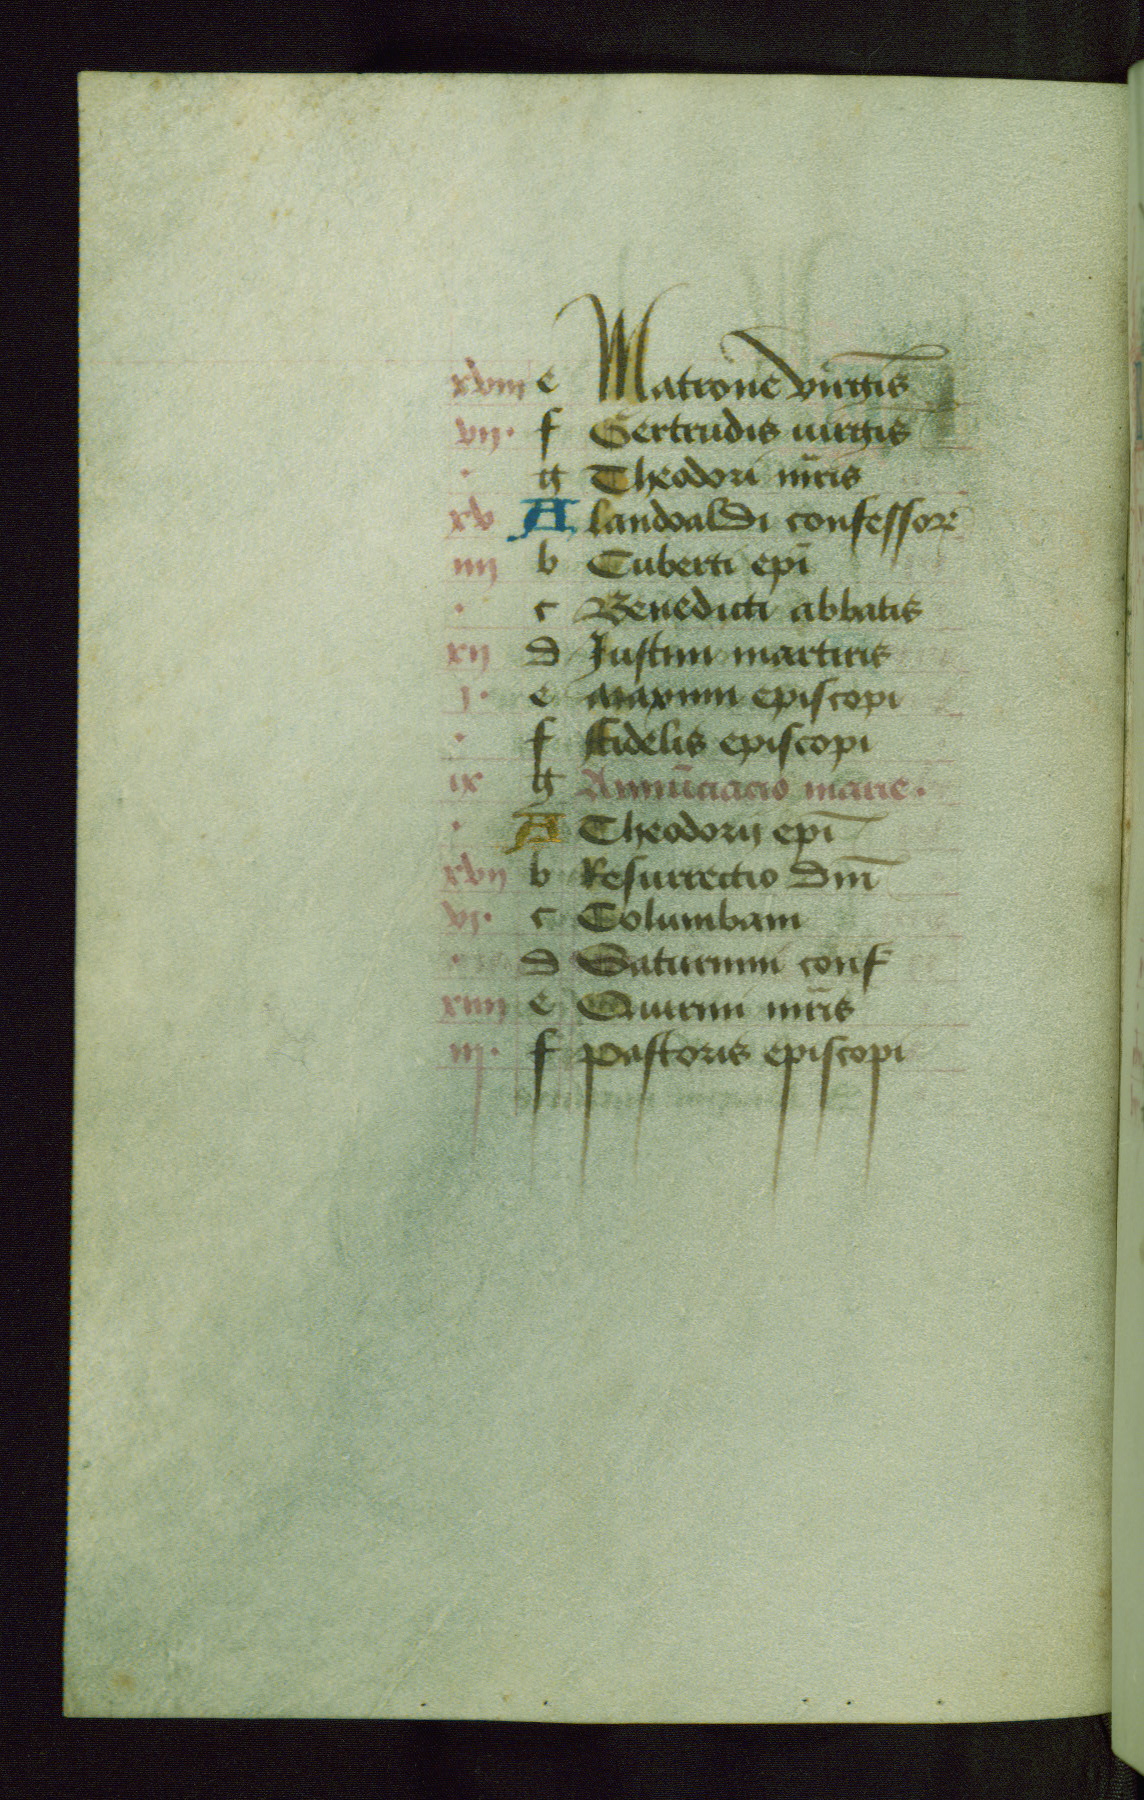 xviii e Matrone virgis̄
vii· f Gertrudis uirgis
· g Theodori m̄ris
xv A landoaldi confessore
iiii b Cuberti epī
· c Benedicti abbatis
xii d Justini martiris
i· e maximi episcopi
· f ffidelis episcopi
ix g Annūciacio marie·
· A Theodorij epī
xvii b Resurrectio dm̄
vi· c Columbani
· d Saturnini conf
xiiii e Quirini m̄ris
iii· f pastoris episcopi